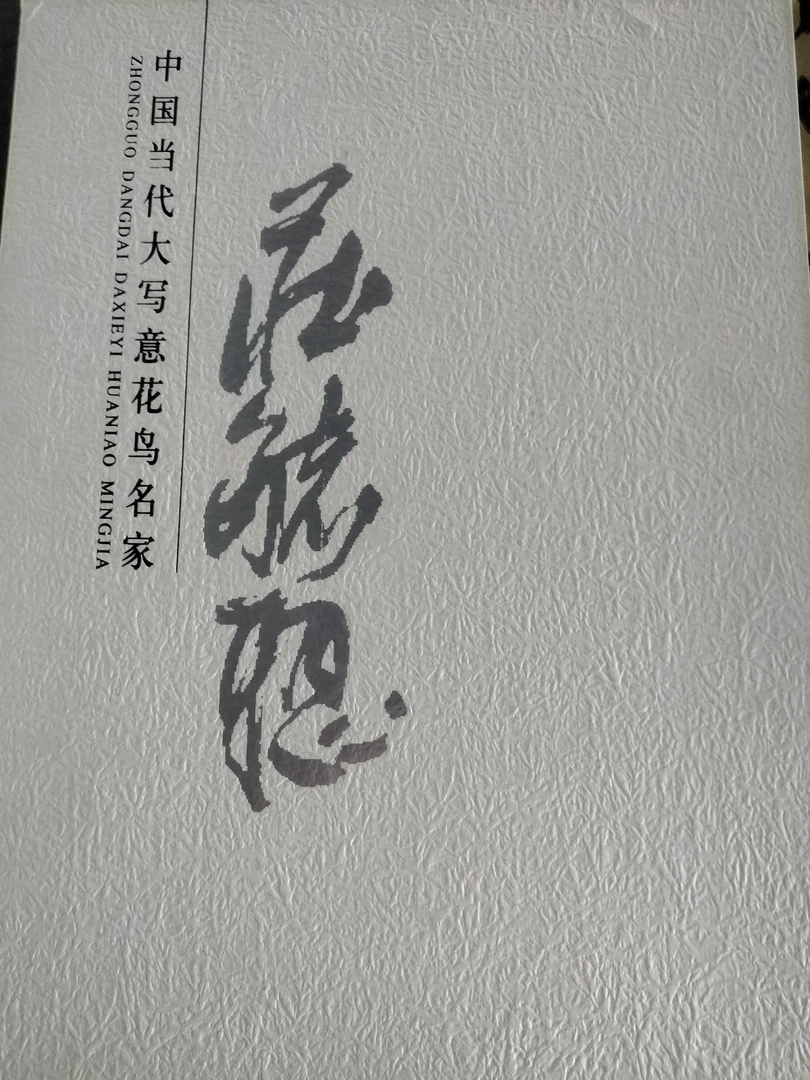 中国当代大写意花鸟名家
ZHONGGUO DANGDAI DAXIEYI HUANIAO MINGJIA
莊毓聪